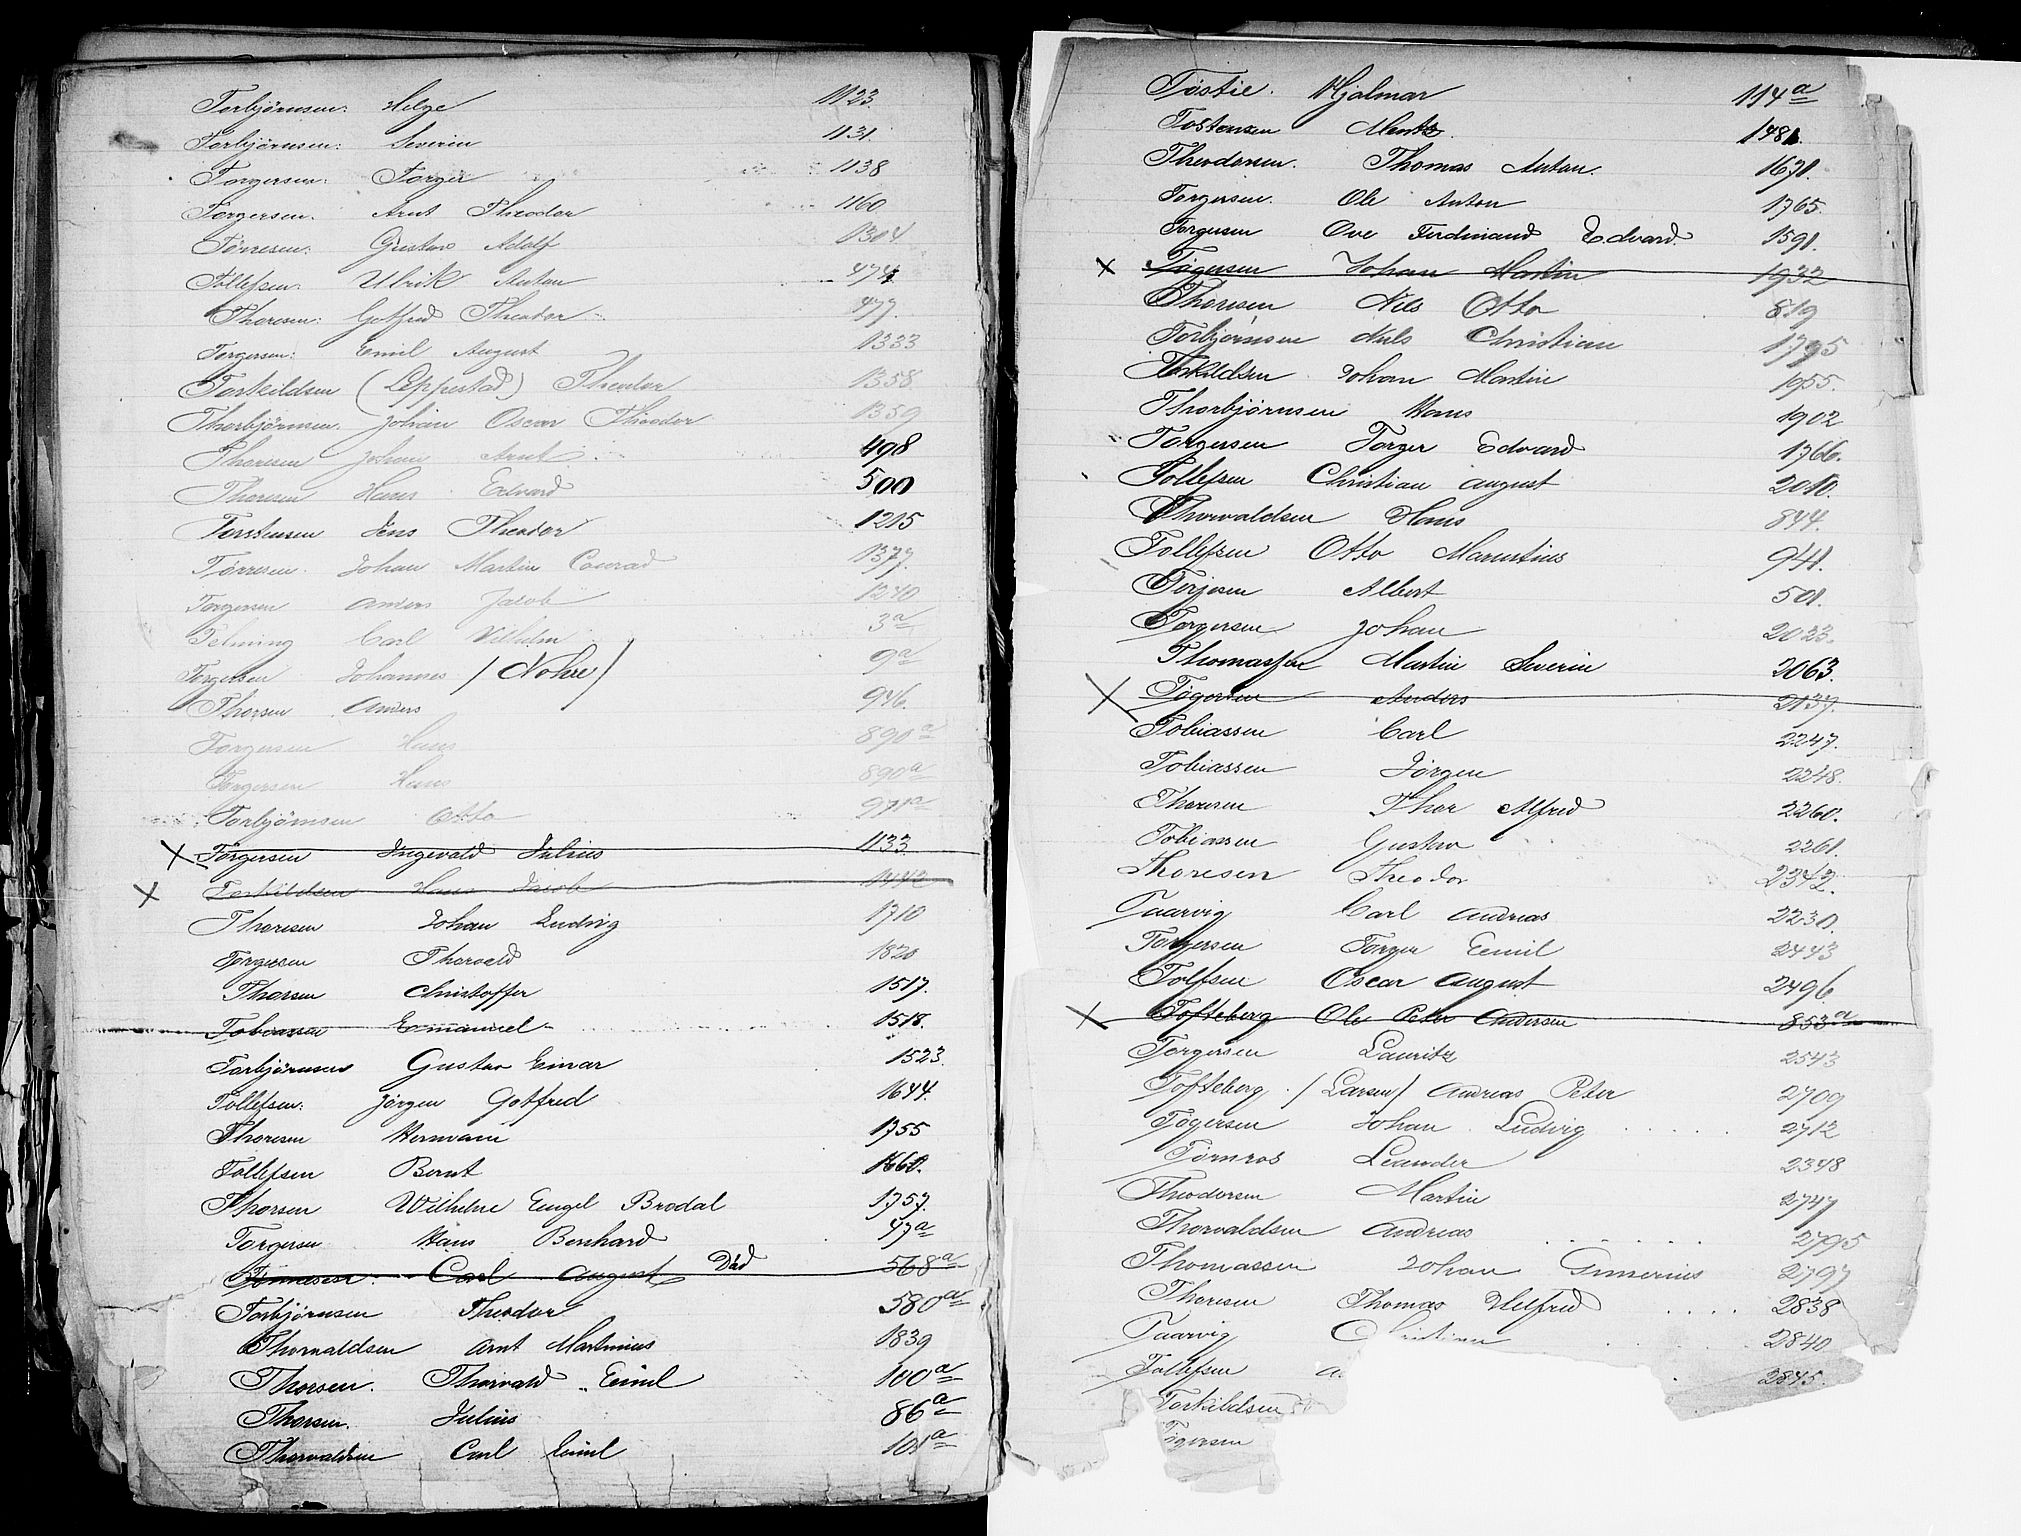 Torbjørnsen: Helge 1123.
Torbjørnsen: Severin 1131.
Torgersen: Torger 1138
Torgersen. Arnt Theodor 1160
Tørresen: Gustav Adolf 1304
Tollefsen: Ulrik Anton 474
Thoresen: Gotfred Theodor 477.
Torgersen: Emil August 1333
Torkildsen (Eppestad) Theodor 1358
Thorbjørnsen. Johan Oscar Theodor 1359
Thoresen Johan Arnt 498
Thoresen Hans Edvard 500
Torstensen Jens Theodor 1215
Tørresen. Johan Martin Conrad 1377.
Torgersen Anders Jacob 1240
Telming Carl Vilhelm 3a
Torgersen Johannes (Nohre) 9a
Thorsen Anders 946.
Torgersen Hans 890a
Torgersen Hans 890a
Torbjørnsen Otto 971a
X Torgersen Ingevald Julius 1133
X Torkildsen Hans Jacob 1442
Thoresen Johan Ludvig 1710
Torgersen Thorvald 1820
Thorsen Christoffer 1517.
Tobiassen Emanuel 1518.
Torbjørnsen Gustav Einar 1523.
Tollefsen: Jørgen Gotfred 1644.
Thoresen Hermann 1755
Tollefsen Bernt 1660.
Thorsen Wilhelm Engel Brodal 1757.
Torgersen Hans Bernhard 47a
Tønnesen. Carl August Død 568a
Torbjørnsen Theodor 580a
Thorvaldsen Arnt Martinius 1839
Thorsen. Thorvald Emil 100a
Thorsen. Julius 86a
Thorvaldsen Carl Emil 101a
Tøstie. Hjalmar 114a
Tostensen Mentz. 1481.
Theodorsen. Thomas Anton. 1671.
Torgersen. Ole Anton 1765.
Torgersen Ove Ferdinand Edvard 1591.
X Tøgersen Johan Martin 1932
Thoresen Nils Otto 819
Torbjørnsen Nils Christian 1795
Torkildsen Johan Martin 1955.
Thorbjørnsen Hans 1902
Torgersen Torger Edvard 1766.
Tollefsen Christian August 2010.
Thorvaldsen Hans 844.
Tollefsen Otto Marentius 941.
Terjesen Albert 501.
Torgersen Johan 2023.
Thomassen Martin Severin 2063.
X Tøgersen Anders 2137.
Tobiassen Carl 2247.
Tobiassen Jørgen 2248.
Thoresen Thor Alfred 2260.
Tobiassen Gustav 2261.
Thoresen Theodor 2342.
Taarvig Carl Andreas 2230.
Torgersen Torger Emil 2443
Tolfsen Oscar August 2496
X Tofteberg Ole Peter Andersen 853a
Torgersen Lauritz 2543
Tofteberg. (Larsen) Andreas Peter 2709
Tøgersen Johan Ludvig 2712
Tørnros Leander 2348
Theodorsen Martin 2747
Thorvaldsen Andreas 2795
Thomassen Johan Gunerius 2797
Thoresen Thomas Helfred 2838
Taarvig Christian 2840
Tollefsen A 2845.
Torkildsen
Tøgersen